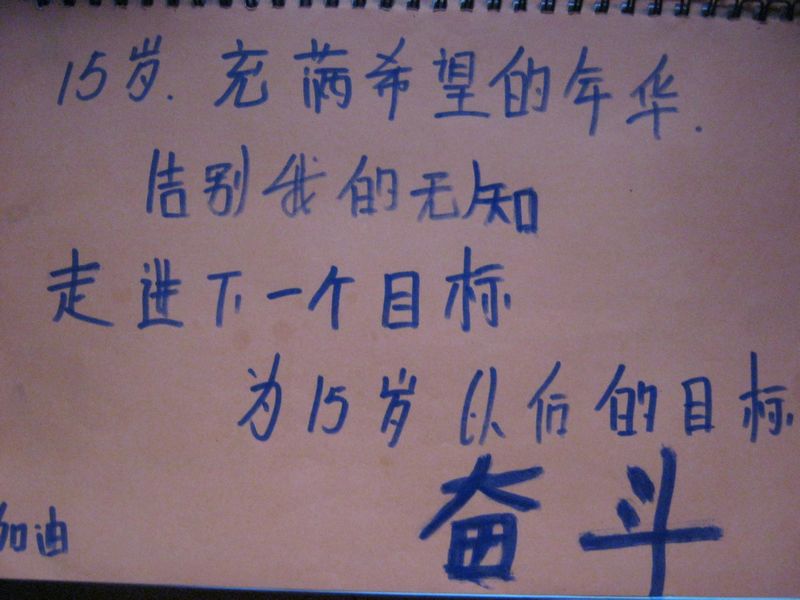 15岁.充满希望的年华.
告别我的无知
走进下一个目标
为15岁以后的目标
奋斗
加油